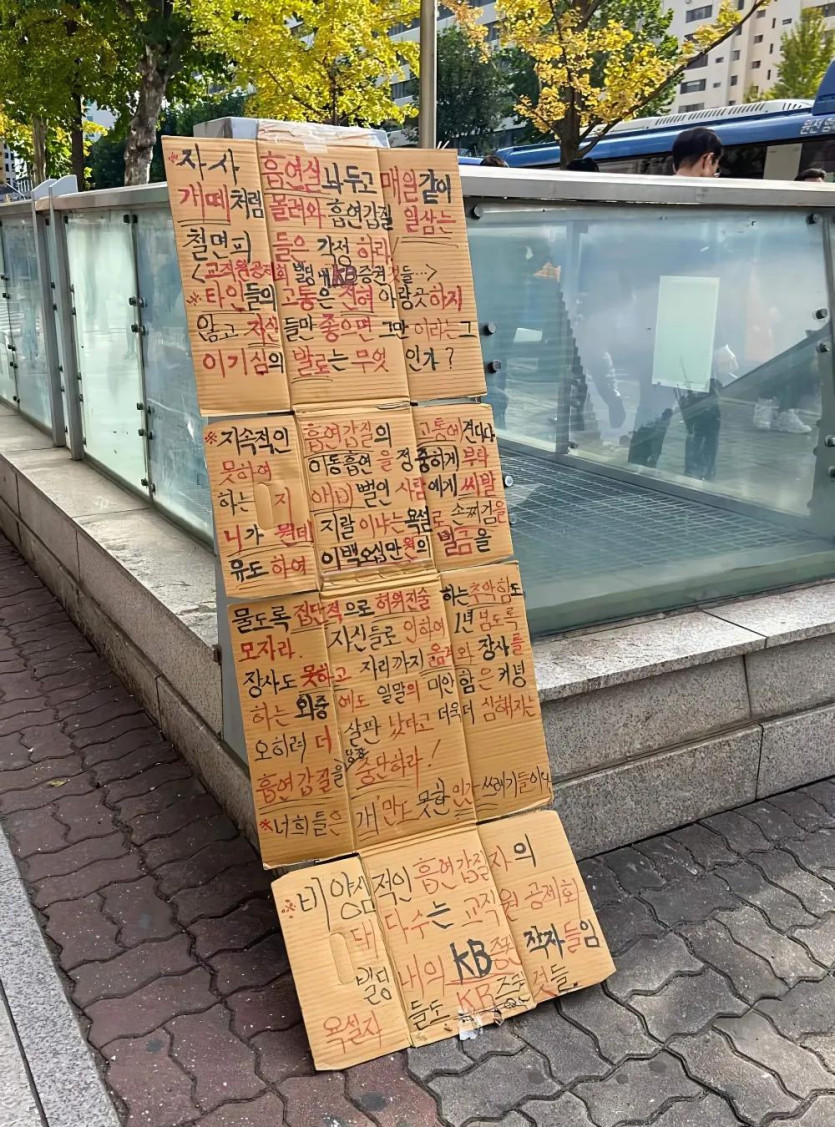 *자사 흡연실 놔두고 매일같이
개떼처럼 몰려와 흡연갑질 일삼는
철면피들은 각성하라!
<교직원공제회 빌딩 내 KB증권 것들…>
*타인들의 고통은 전혀 아랑곳하지
않고 자신들만 좋으면 그만이라는 그
이기심의 발로는 무엇인가?
*지속적인 흡연갑질의 고통에 견디다
못하여 이동흡연을 정중하게 부탁
하는 지 애비 뻘인 사람에게 씨발
니가 뭔데 지랄이냐는 욕설로 손찌검을
유도하여 이백오십만원의 벌금을
물도록 집단적으로 허위진술하는 추악함도
모자라. 자신들로 인하여 1년 넘도록
장사도 못하고 자리까지 옮겨와 장사를
하는 와중에도 일말의 미안함은 커녕
오히려 더 살판 났다고 더욱더 심해지는
흡연갑질을 당장 중단하라!
*너희들은 개만도 못한 인간 쓰레기들이다
*비양심적인 흡연갑질자의
대다수는 교직원공제회
빌딩 내의 KB증권 작자들임
욕설자들도 KB증권 것들.